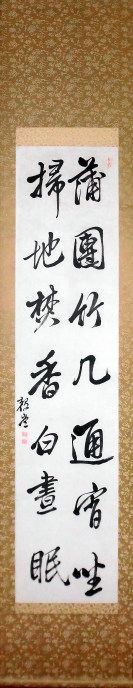 蒲團竹几通宵坐
掃地焚香白晝眠